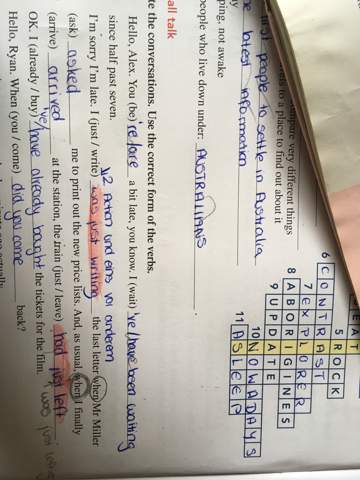 mpare very different things
to a place to find out about it
first people to settle in Australia
latest information
ping, not awake
people who live down under: AUSTRALIANS
5 R O
6 C O N T R A S T
7 E X P L O R E R
8 A B O R I G I N E S
9 U P D A T E
10 N O W A D A Y S
11 A S L E E P
all talk
te the conversations. Use the correct form of the verbs.
Hello, Alex. You (be) 're a bit late, you know. I (wait) 've been waiting
since half past seven.
I'm sorry I'm late. I (just / write) was just writing the last letter when Mr Miller
(ask) asked me to print out the new price lists. And, as usual, when I finally
(arrive) arrived at the station, the train (just / leave) had just left.
OK. I (already / buy) 've have already bought the tickets for the film.
Hello, Ryan. When (you / come) did you come back?